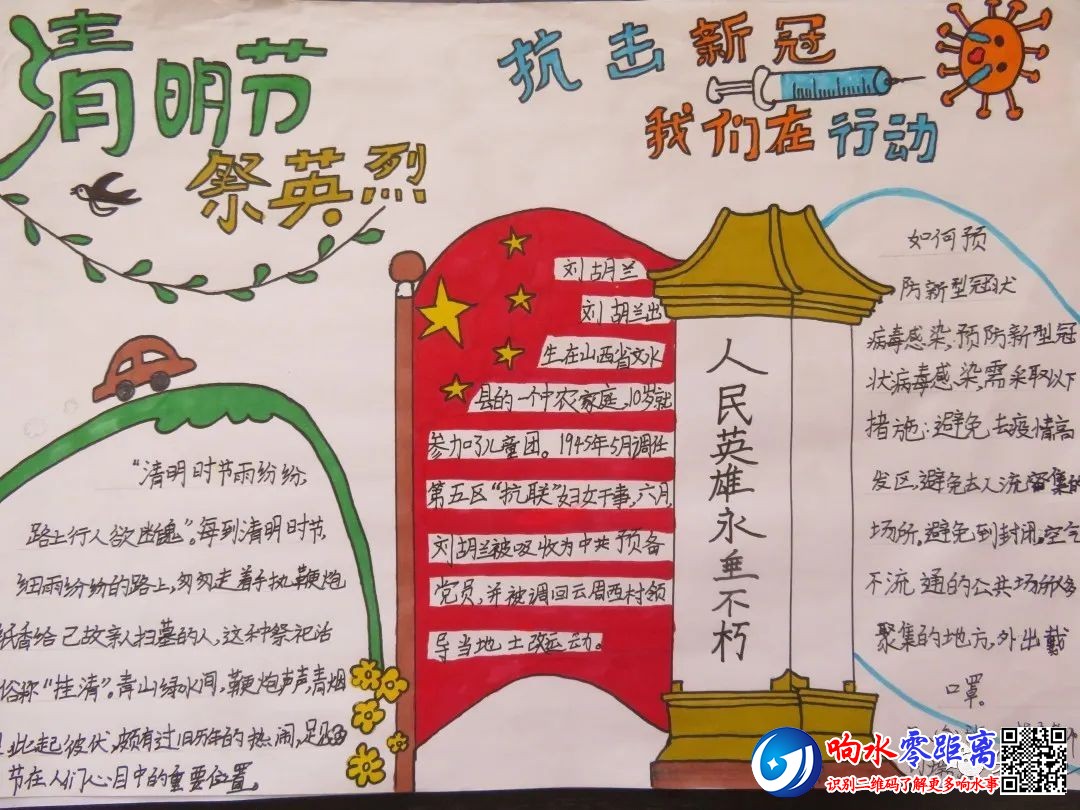 清明节
祭英烈
抗击新冠
我们在行动
"清明时节雨纷纷,
路上行人欲断魂"。每到清明时节
细雨纷纷的路上,匆匆走着手执鞭炮
纸香给已故亲人扫墓的人,这种祭祀活
俗称"挂清"。青山绿水间,鞭炮声声,青烟
此起彼伏,颇有过旧历年的热闹,足
节在人们心目中的重要位置。
刘胡兰
刘胡兰出
生在山西省文水
县的一个中农家庭,10岁就
参加了儿童团。1945年5月调任
第五区"抗联"妇女干事,六月,
刘胡兰被吸收为中共预备
党员,并被调回云周西村领
导当地土改运动。
人民英雄永垂不朽
如何预
防新型冠状
病毒感染,预防新型冠
状病毒感染需采取以下
措施:避免去疫情高
发区,避免去人流密集的
场所。避免到封闭,空气
不流通的公共场所多
聚集的地方,外出戴
口罩。
响水零距离
识别二维码了解更多响水事